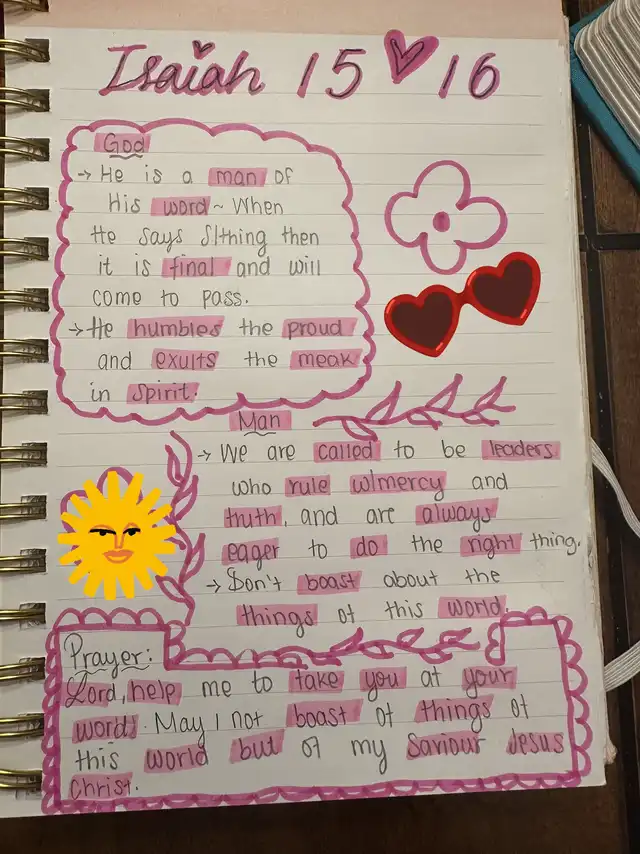 Isaiah 15 16
God
→ He is a man of
His word ~ When
He says S/thing then
it is final and will
come to pass.
→ He humbles the proud
and exults the meak
in spirit.
Man
→ We are called to be leaders
who rule w/mercy and
truth, and are always
eager to do the right thing.
→ Don't boast about the
things of this world.
Prayer:
Lord, help me to take you at your
word. May I not boast of things of
this world but of my Saviour Jesus
Christ.